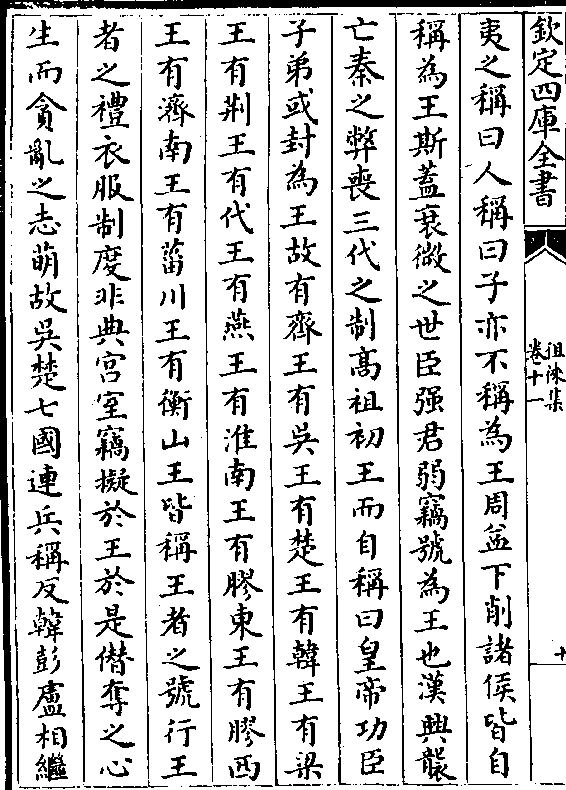 欽定四庫全書
徂徠集
卷十一
十
夷之稱曰人稱曰子亦不稱為王周益下削諸侯皆自
稱為王斯蓋衰微之世臣强君弱竊號為王也漢興襲
亡秦之弊喪三代之制高祖初王而自稱曰皇帝功臣
子弟或封為王故有齊王有吳王有楚王有韓王有梁
王有荆王有代王有燕王有淮南王有膠東王有膠西
王有濟南王有菑川王有衡山王皆稱王者之號行王
者之禮衣服制度非典宫室竊擬於王於是僣奪之心
生而貪亂之志萌故吳楚七國連兵稱反韓彭盧相繼